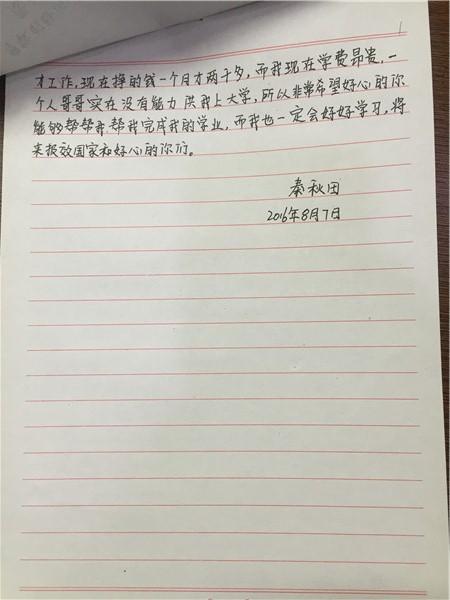 才工作,现在挣的钱一个月才两千多,而我现在学费昂贵,一
个人哥哥实在没有能力供我上大学,所以非常希望好心的你
能够帮帮我,帮我完成我的学业,而我也一定会好好学习,将
来报效国家和好心的你们。
秦秋田
2016年8月7日